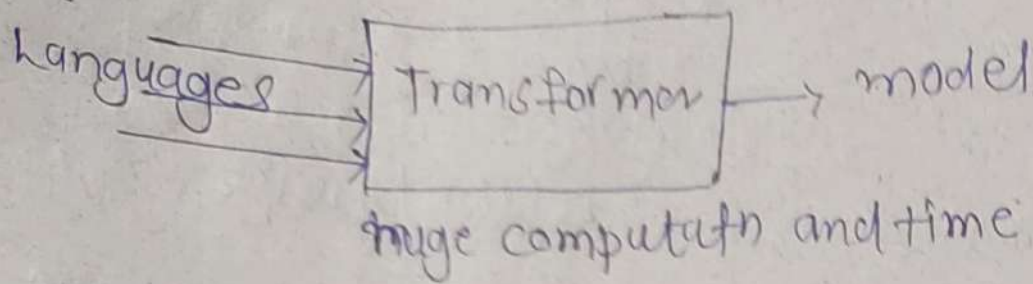 Languages
Transformer
model
huge computatn and time